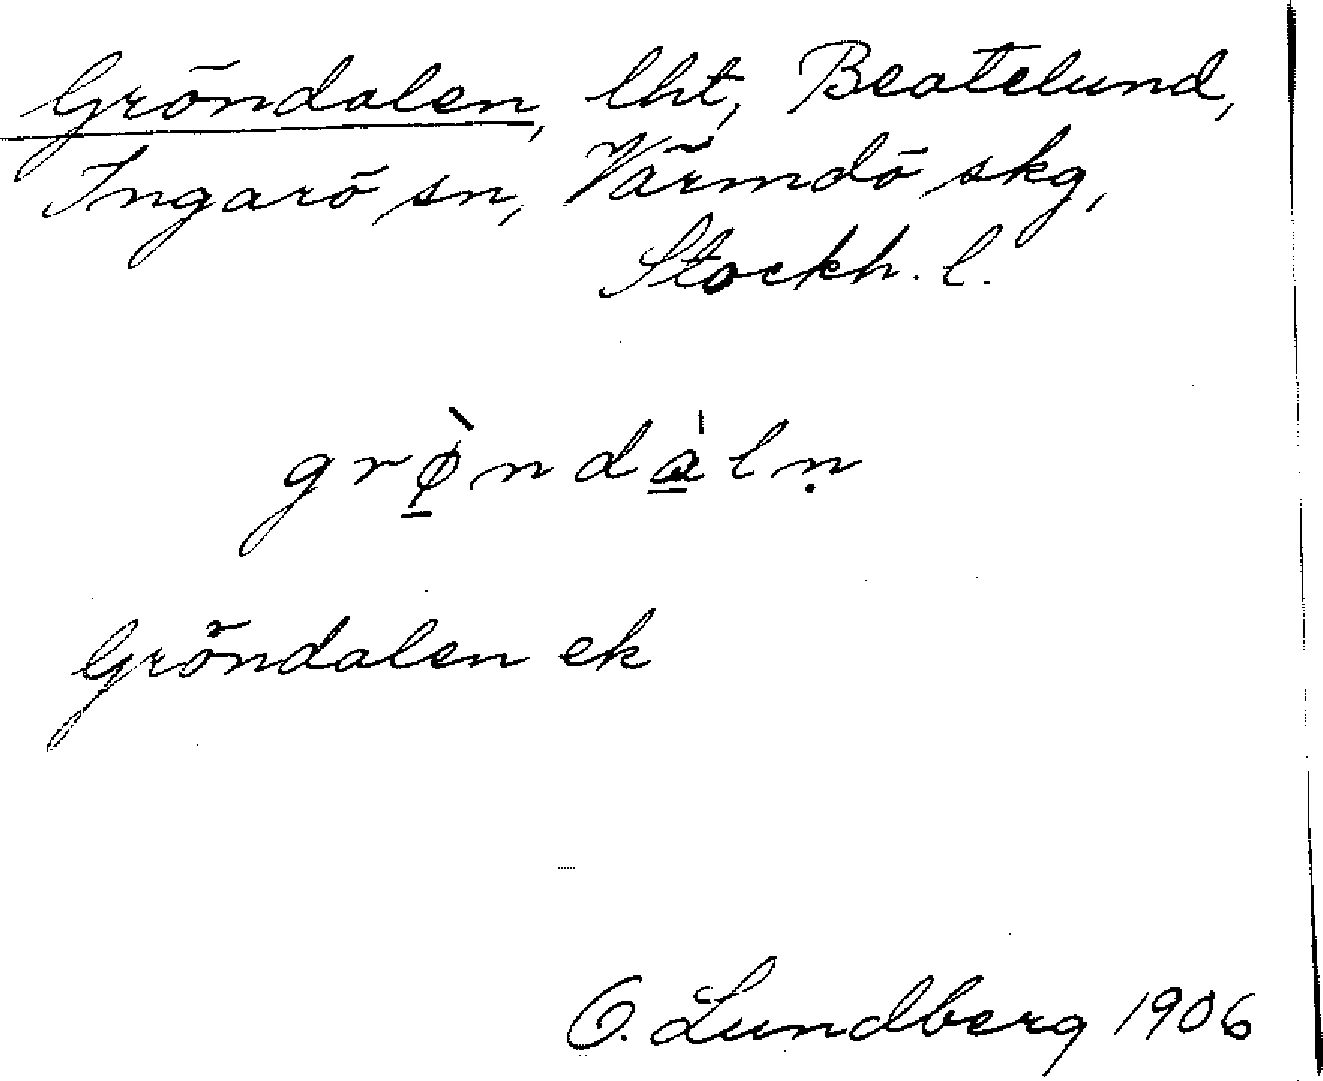 Gröndalen, lht, Beatelund,
Ingarö sn, Värmdö skg,
Stockh. l.
grø̱̀nda̱̍lṇ
Gröndalen ek
O. Lundberg 1906